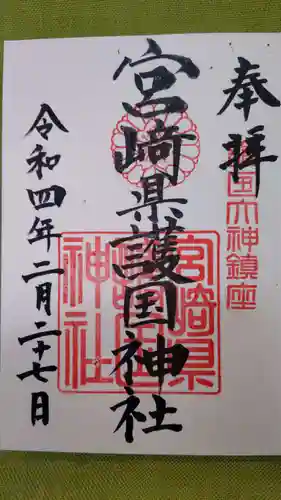 奉拝
国大神鎮座
宮崎県護国神社
宮崎県
神社
令和四年二月二十七日